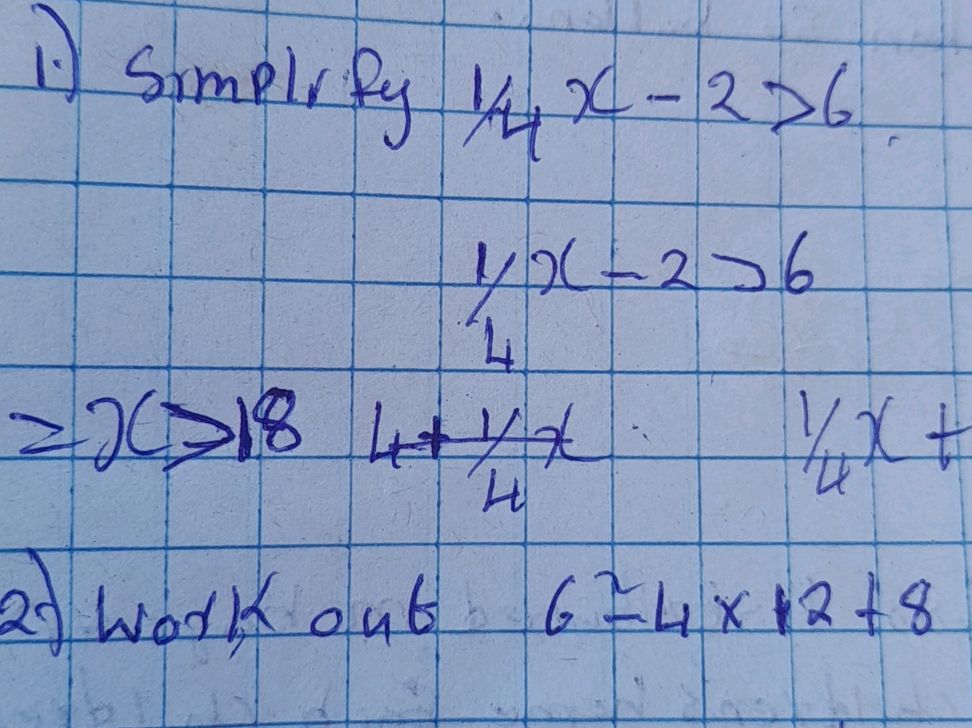 1.) Simplify 1/4 x - 2 > 6
1/4 x - 2 > 6
= x > 18 4 + 1/4 x 1/4 x +
2.) Work out 6² - 4 x 12 + 8